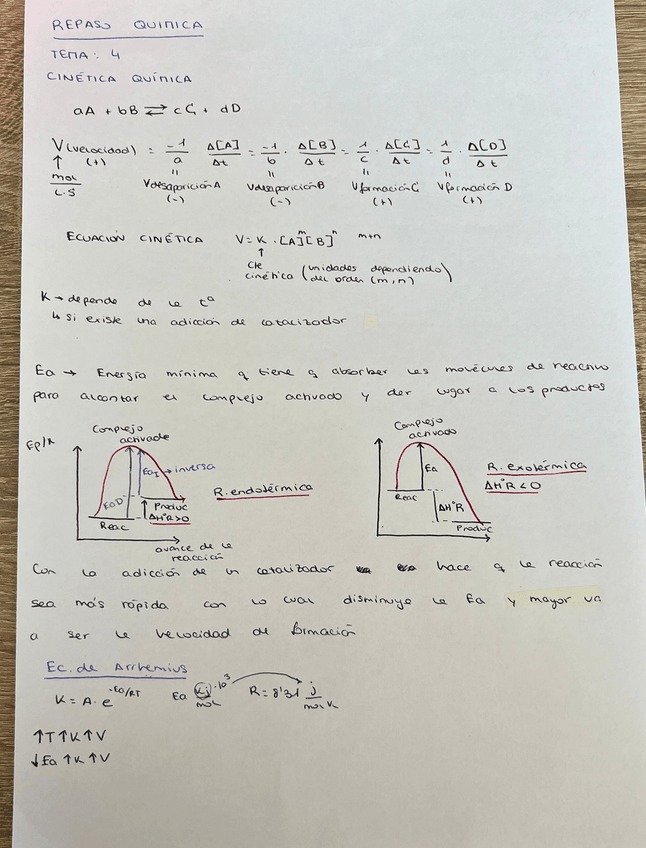 REPASO QUIMICA
TEMA: 4
CINÉTICA QUÍMICA
aA + bB ⇄ cC + dD
V(velocidad) = -1/a Δ[A]/Δt = -1/b · Δ[B]/Δt = 1/c · Δ[C]/Δt = 1/d · Δ[D]/Δt
↑ (+)
mol/L·s
" " " "
Vdesaparición A Vdesaparición B Vformación C Vformación D
(-) (-) (+) (+)
ECUACIÓN CINÉTICA V = K · [A]^m [B]^n m+n
↑
Cte cinética (unidades dependiendo del orden (m,n))
K → depende de la tª
↳ si existe una adicción de catalizador
Ea → Energía mínima q tiene q absorber las moléculas de reactivo
para alcontar el complejo activado y der lugar a los productos
Complejo activado
Ea_I → inversa
EaD
Reac
Produc
ΔH°R>0
avance de la reacción
R. endotérmica
Complejo activado
Ea
Reac
ΔH°R
Produc
R. exotérmica
ΔH°R<0
Con la adicción de un catalizador hace q la reacción
sea más rápida con lo cual disminuye la Ea y mayor va
a ser la velocidad de formación
Ec. de Arrhenius
K = A · e^-Ea/RT Ea kj/mol ·10^3 R = 8'31 j/mol K
↑T ↑K ↑V
↓Ea ↑K ↑V